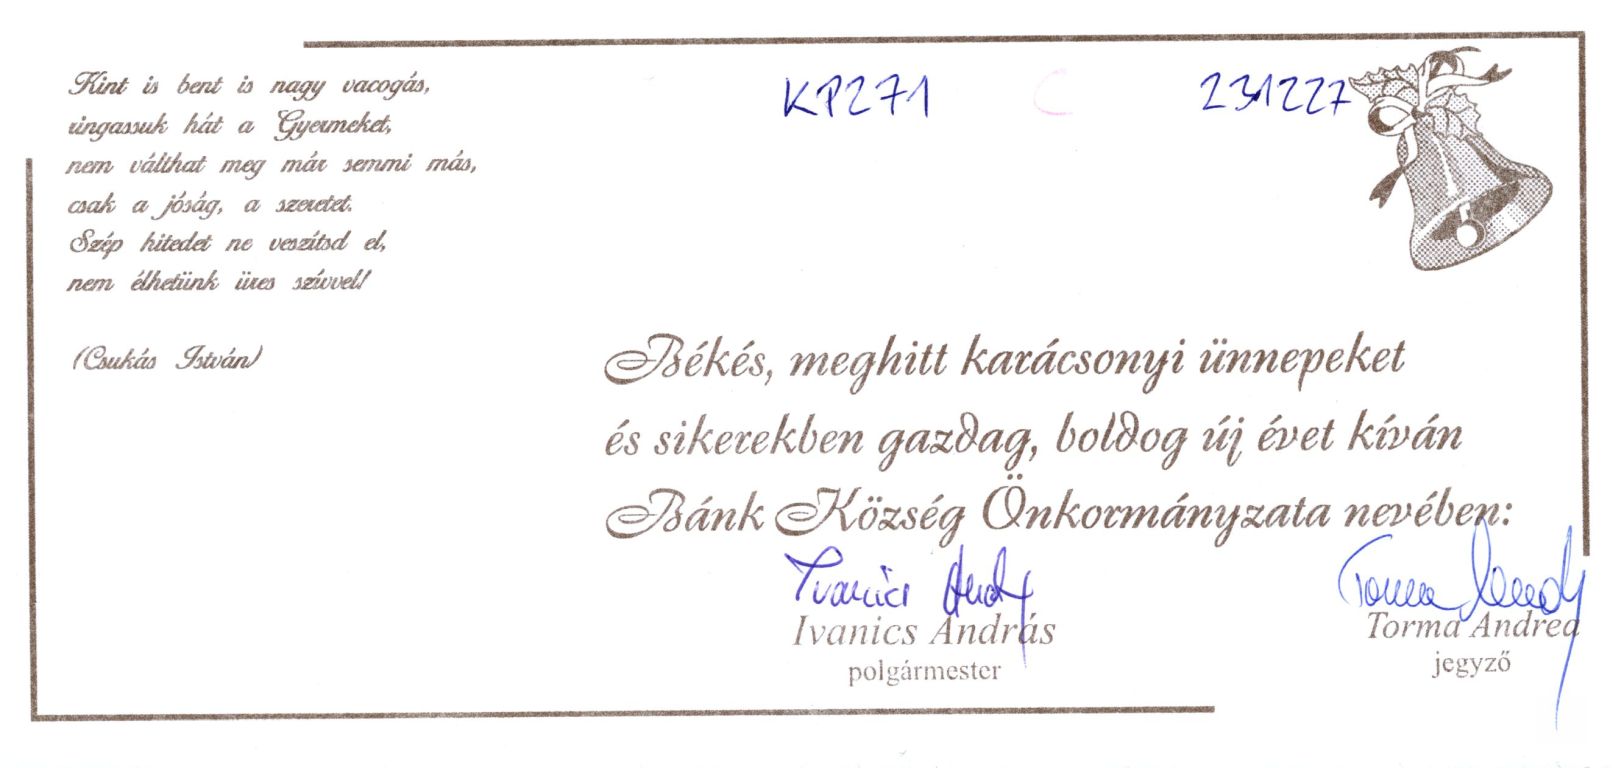 Kint is bent is nagy vacogás,
ringassuk hát a Gyermeket,
nem válthat meg már semmi más,
csak a jóság, a szeretet.
Szép hitedet ne veszítsd el,
nem élhetünk üres szívvel!
(Csukás István)
KP271 C 231227
Békés, meghitt karácsonyi ünnepeket
és sikerekben gazdag, boldog új évet kíván
Bánk Község Önkormányzata nevében:
Ivanics András Torma Andrea
Ivanics András Torma Andrea
polgármester jegyző